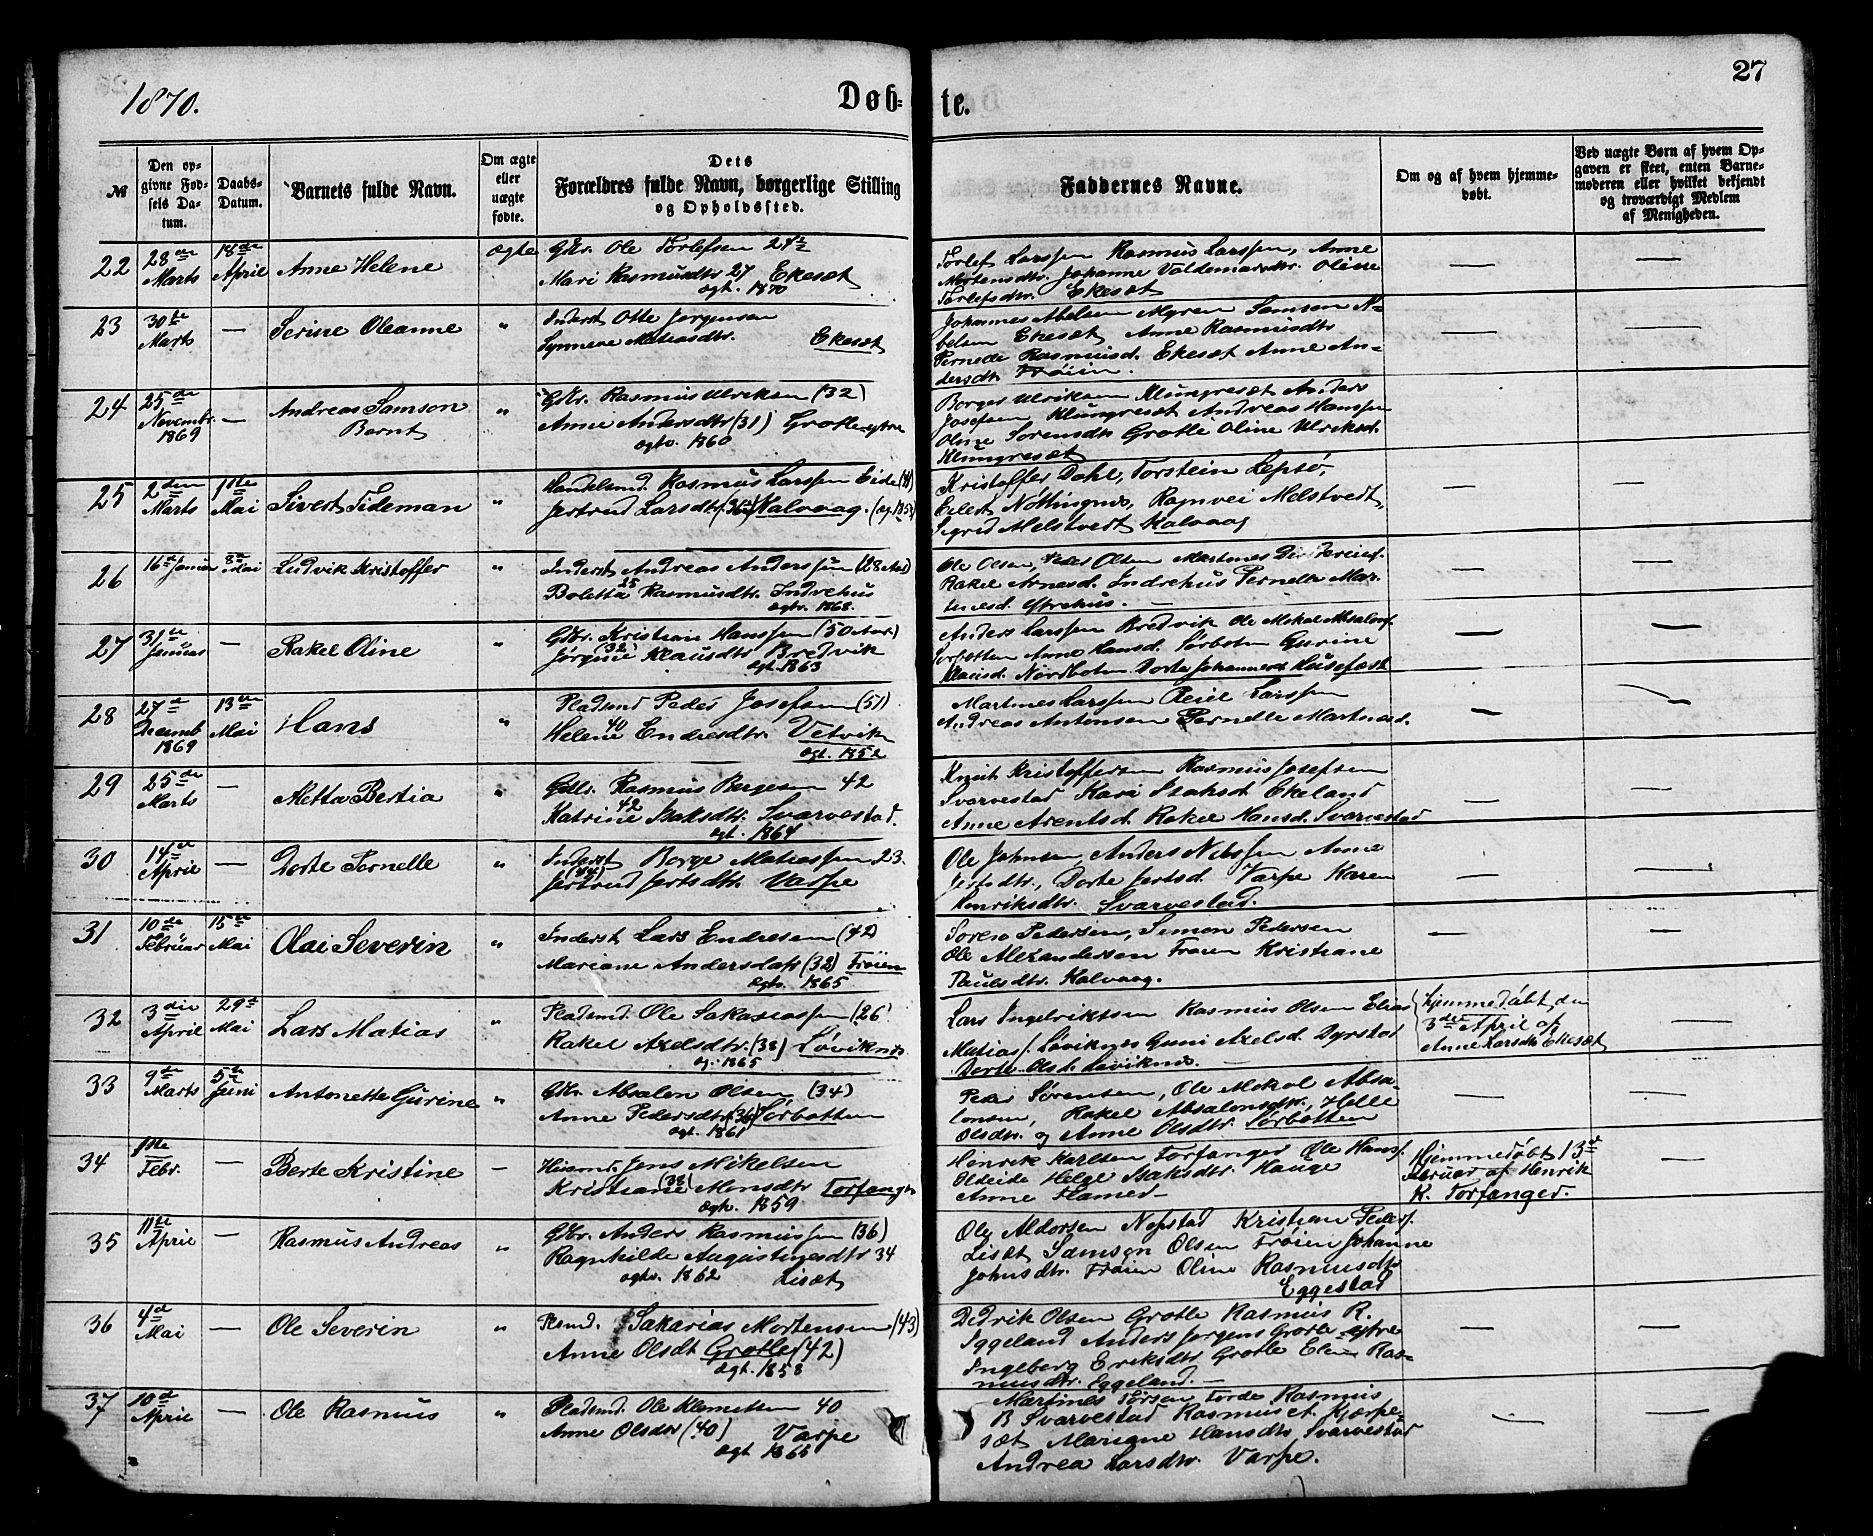 1870.
Døb-
te.
27
№
Den opgivne Fødsels Datum.
Daabs-Datum.
Barnets fulde Navn.
Om ægte eller uægte fødte.
Dets Forældres fulde Navn, borgerlige Stilling og Opholdssted.
Faddernes Navne.
Om og af hvem hjemmedøbt.
Ved uægte Børn af hvem Opgaven er skeet, enten Barnemoderen eller hvilket bekjendt og troværdigt Medlem af Menigheden.
22 28de Marts 18de April Anne Helene ægte
Gbr. Ole Torlefsen
Mari Rasmusdtr 27 Ekesæt
ægt. 1870
Torlef Larssen Rasmus Larssen, Anne
Mortensdtr. Johanne Valdemarsdtr. Oline
Torlefsdtr. Ekesæt
— —
23 30te Marts — Serine Oleanne "
Inderst Otte Jørgensen
Synneve Matiasdtr. Ekesæt
Johannes Abelsen Myren Samson A-
belsen Ekesæt Anne Rasmusdtr
Pernelle Rasmusd. Ekesæt Anne An-
dersdtr. Frøien.
— —
24 25de Novembr. 1869 — Andreas Samson Bernt "
Gbr. Rasmus Ulriksen (32)
Anne Andersdtr (31) Grotle ytre
ægtv. 1860
Borger Ulriksen Klungresæt Anders
Josefsen Klungresæt Andreas Hanssen
Oline Sørensdtr Grotle Oline Ulriksd.
Klungresæt
— —
25 2den Marts 1ste Mai Sivert Tideman "
Handelsmd. Rasmus Larssen Eide
Jertrud Larsdtr. Kalvaag.
Kristoffer Dahl, Torstein Lepsø,
Eilert Nøttingnes, Ragnvei Melstvedt,
Sigrid Melstvedt Kalvaag
— —
26 16de Januar Mai Ludvik Kristoffer "
Inderst Andreas Anderssen (28 Aar)
Boletta 25 Rasmusdtr. Indrehus
ægtv. 1868.
Ole Olsen, Peder Olsen Martines
Rakel Arnesd. Indrehus Pernelle Mar-
tinesd. Ytrehus. —
— —
27 31te Januar — Rakel Oline "
Gbr. Kristian Hanssen (50 Aar)
Jørgine (32) Klausdtr Bredvik
ægt. 1863
Anders Larssen Bredvik Ole Mekal Absalonf.
Sørbotten Anne Hansd. Sørboten Gurine
Klausd. Nordboten Dorte Johannesd Husefæst
— —
28 27de Decemb 1869 13de Mai Hans "
Pladsmd Peder Josefsen (51)
Helene 40 Endresdtr. Vetvik
ægt. 1852
Martines Larssen Reiel Larssen
Andreas Antonsen Pernelle Martinesd.
— —
29 25de Marts — Metta Bertia "
Gbr. Rasmus Børgesen 42
Katrine 42 Isaksdtr. Svarvestad.
ægt. 1864
Knut Kristoffersen Rasmus Josefsen
Svarvestad Kari Isaksd. Ekeland
Anne Arentsd. Rakel Hansd. Svarvestad
— —
30 14de April — Dorte Pernelle "
Inderst Børge Matiassen 23
Jertrud Jertsdtr. Varpe
Ole Johnsen, Anders Nilssen Anne
Jertsdtr., Dorte Jertsd. Varpe Karen
Henriksdtr. Svarvestad.
— —
31 10de Februar 15de Mai Olai Severin "
Inderst Lars Endresen (42)
Mariane Andersdatr (32) Frøien
ægtv. 1865
Søren Pedersen, Simon Pedersen
Ole Alexandersen Frøien Kristiane
Paulsdtr. Kalvaag.
— —
32 3die April 29de Mai Lars Matias "
Pladsmd. Ole Sakariassen (26)
Rakel Axelsdtr. (38) Løviknes
æg. 1865
Lars Ingebriktsen Rasmus Olsen Elias
Matiasf. Løviknes Guni Axelsd. Dyrstad
Dorte Olsd. Løviknes —
Hjemmedøbt, den
3die April af
Anne Larsdtr Ekesæt
—
33 9de Marts 5te Juni Antonette Gurine "
Gbr. Absalon Olsen (34)
Anne Pedersdtr (36) Sørbotten
ægt. 1861
Peder Sørensen, Ole Mekal Absa-
lonsen, Rakel Absalonsdtr., Helle
Olsdtr. og Anne Olsdtr. Sørbotten
— —
34 1ste Febr. — Berte Kristine —
Husmd. Jens Mikelsen
Kristiane (38) Monsdtr Torfanger
ægtv. 1859
Henrik Karlsen Torfanger Ole Hansf.
Oldeide Helge Isaksdtr. Hauge
Anne Flamer —
Hjemmedøbt 13de
Februar af Henrik
K. Torfanger.
—
35 11te April — Rasmus Andreas "
Gbr. Anders Rasmussen (36)
Ragnhilde Augustinesdtr 34
ægtv. 1862 Lisæt
Ole Aldorsen Nøpstad Kristian Pedersf.
Lisæt Samson Olsen Frøien Johanne
Johnsdtr. Frøien Oline Rasmusdtr
Eggestad
36 4de Mai — Ole Severin "
Plsmd. Sakarias Mortensen (43)
Anne Olsdt Grotle (42)
ægt. 1858
Didrik Olsen Grotle Rasmus R.
Iggeland Anders Jørgens Grotle ytre
Ingeberg Eriksdtr Grotle Elen Ras-
musdtr. Eggeland. —
— —
37 10de April — Ole Rasmus "
Pladsmd. Ole Klemetsen 40
Anne Olsdtr (40) Varpe
ægt 1865
Martines Torsen Førde Rasmus
B Svarvestad Rasmus A. Kjerpe-
sæt Mariane Hansdtr Svarvestad
Andrea Larsdtr. Varpe.
— —